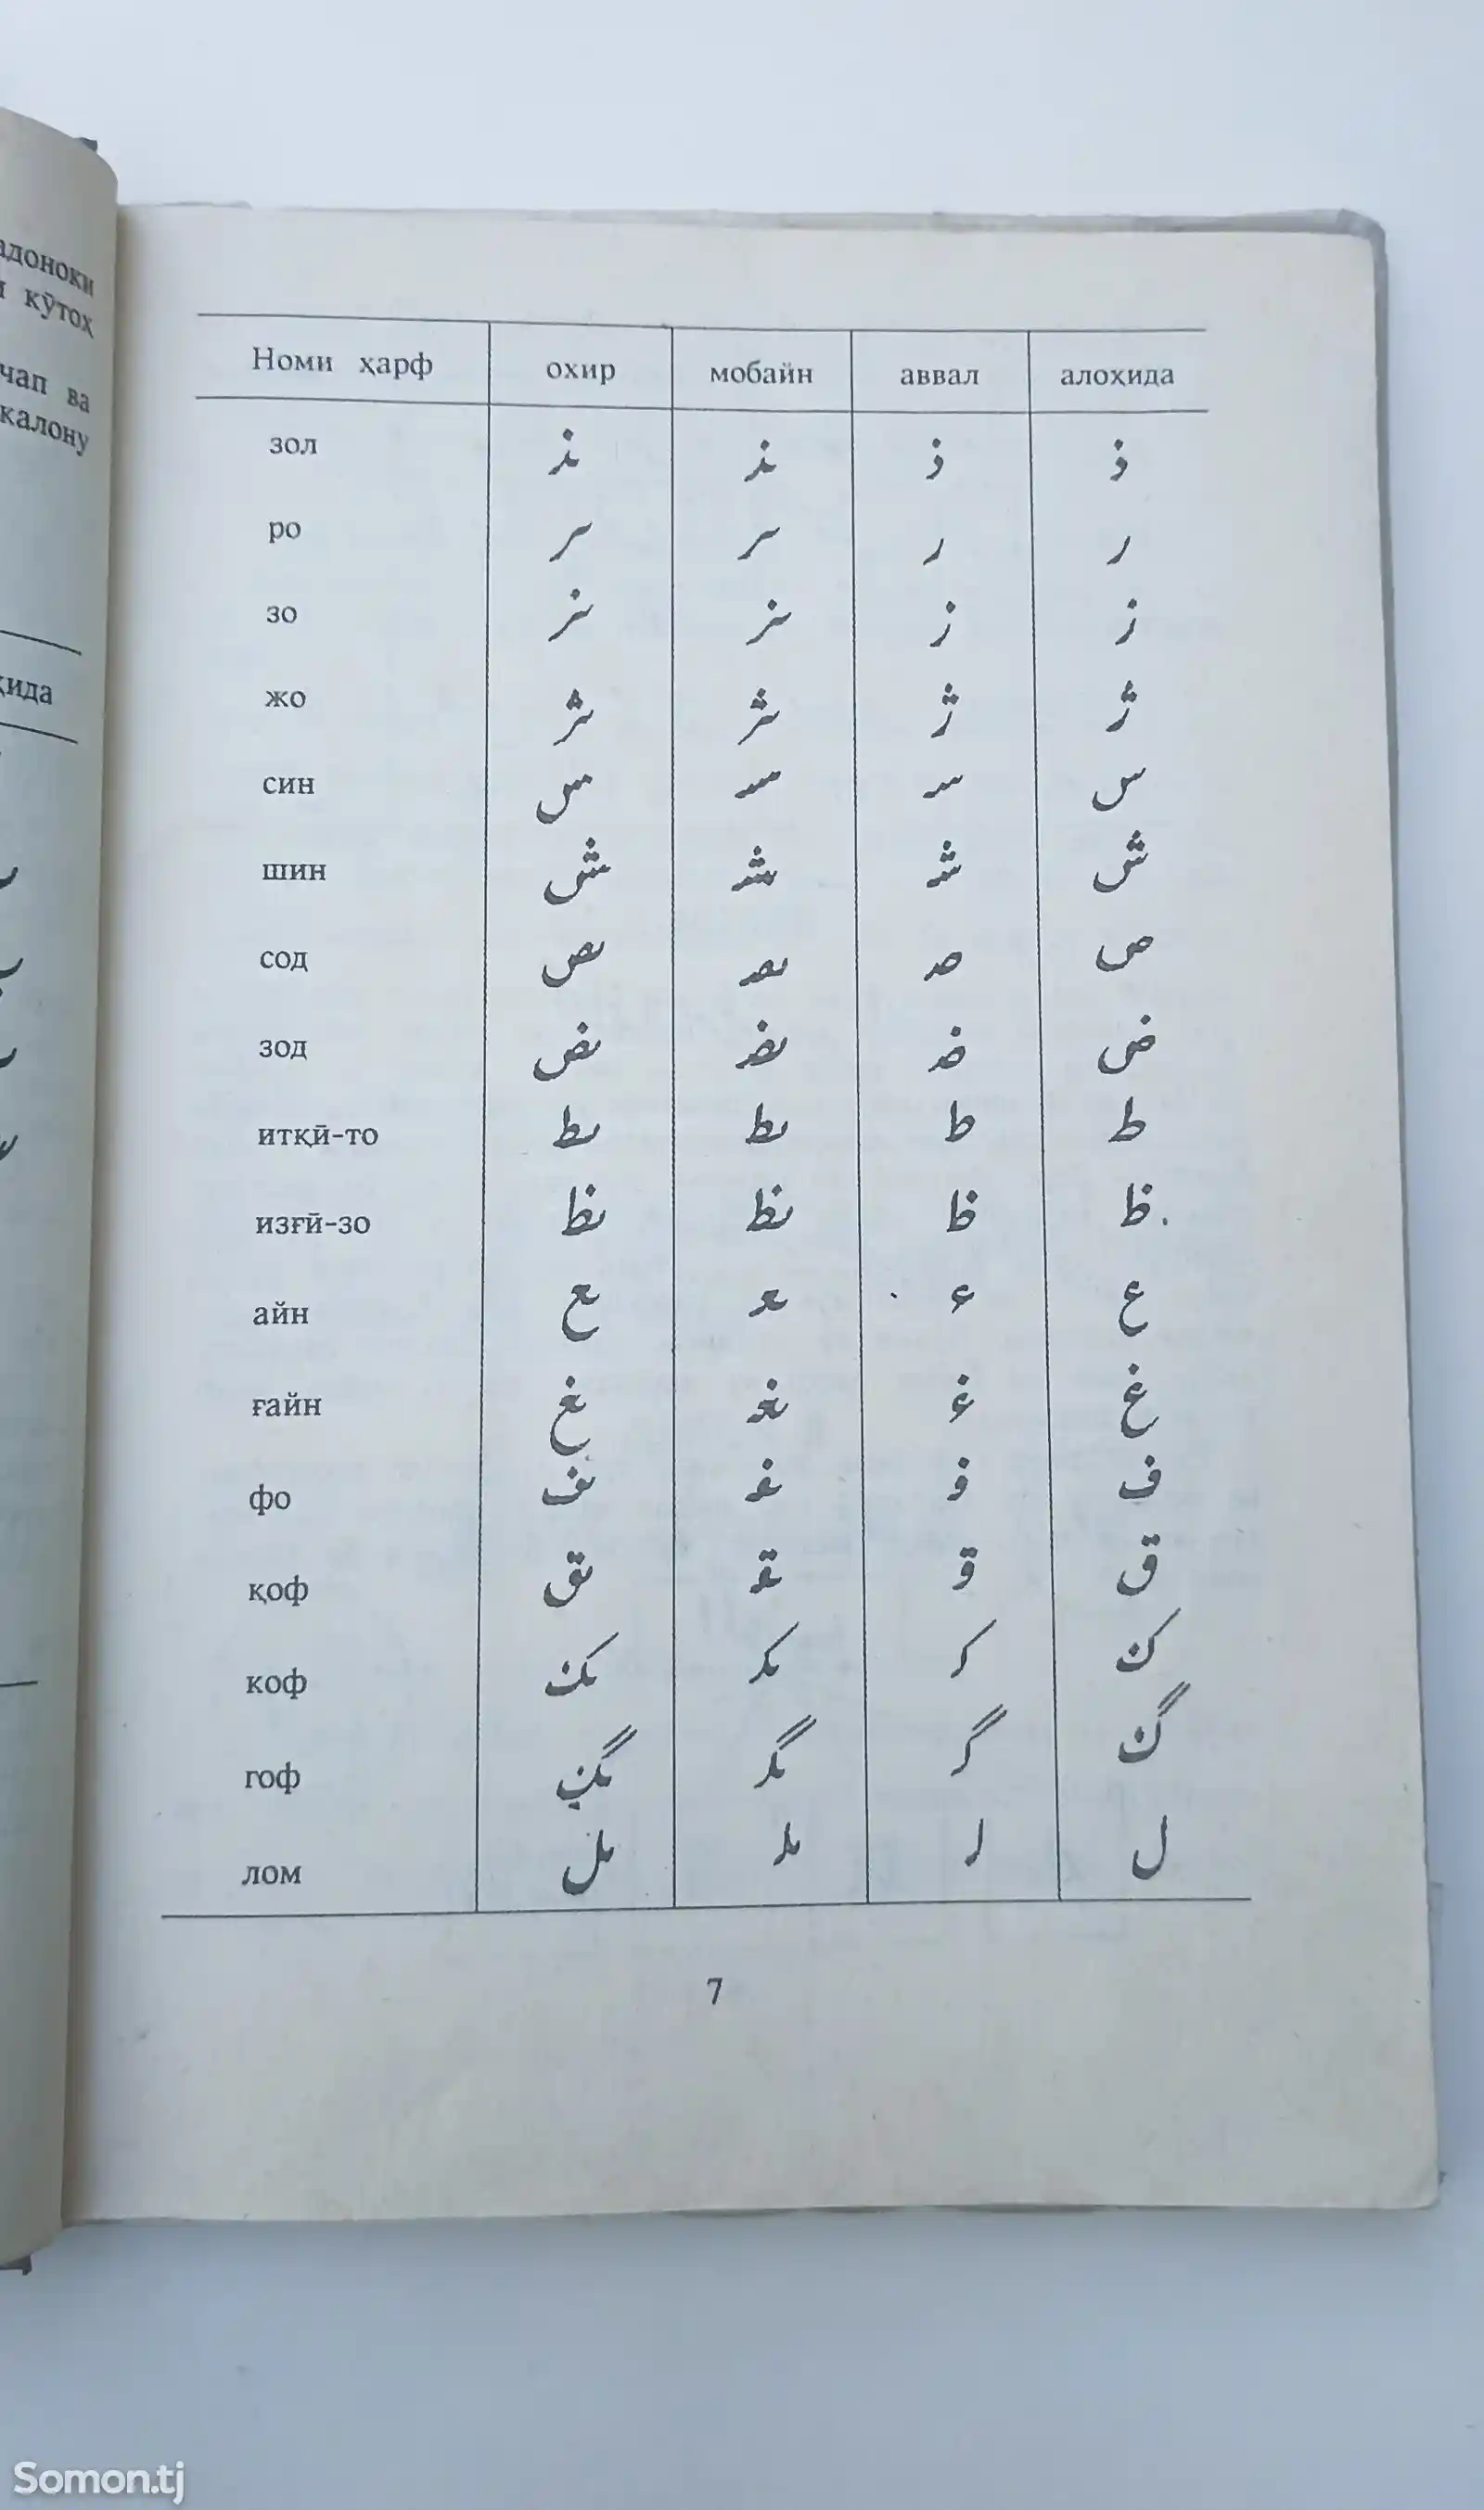 адоноки
кӯтоҳ
чап ва
калону
ҳида
Номи ҳарф охир мобайн аввал алоҳида
зол ـذ ـذ ذ ذ
ро ـر ـر ر ر
зо ـز ـز ز ز
жо ـژ ـژ ژ ژ
син ـس ـسـ سـ س
шин ـش ـشـ شـ ش
сод ـص ـصـ صـ ص
зод ـض ـضـ ضـ ض
итқӣ-то ـط ـطـ طـ ط
изғӣ-зо ـظ ـظـ ظـ ظ
айн ـع ـعـ عـ ع
ғайн ـغ ـغـ غـ غ
фо ـف ـفـ فـ ف
қоф ـق ـقـ قـ ق
коф ـک ـکـ کـ ک
гоф ـگ ـگـ گـ گ
лом ـل ـلـ لـ ل
7
Somon.tj